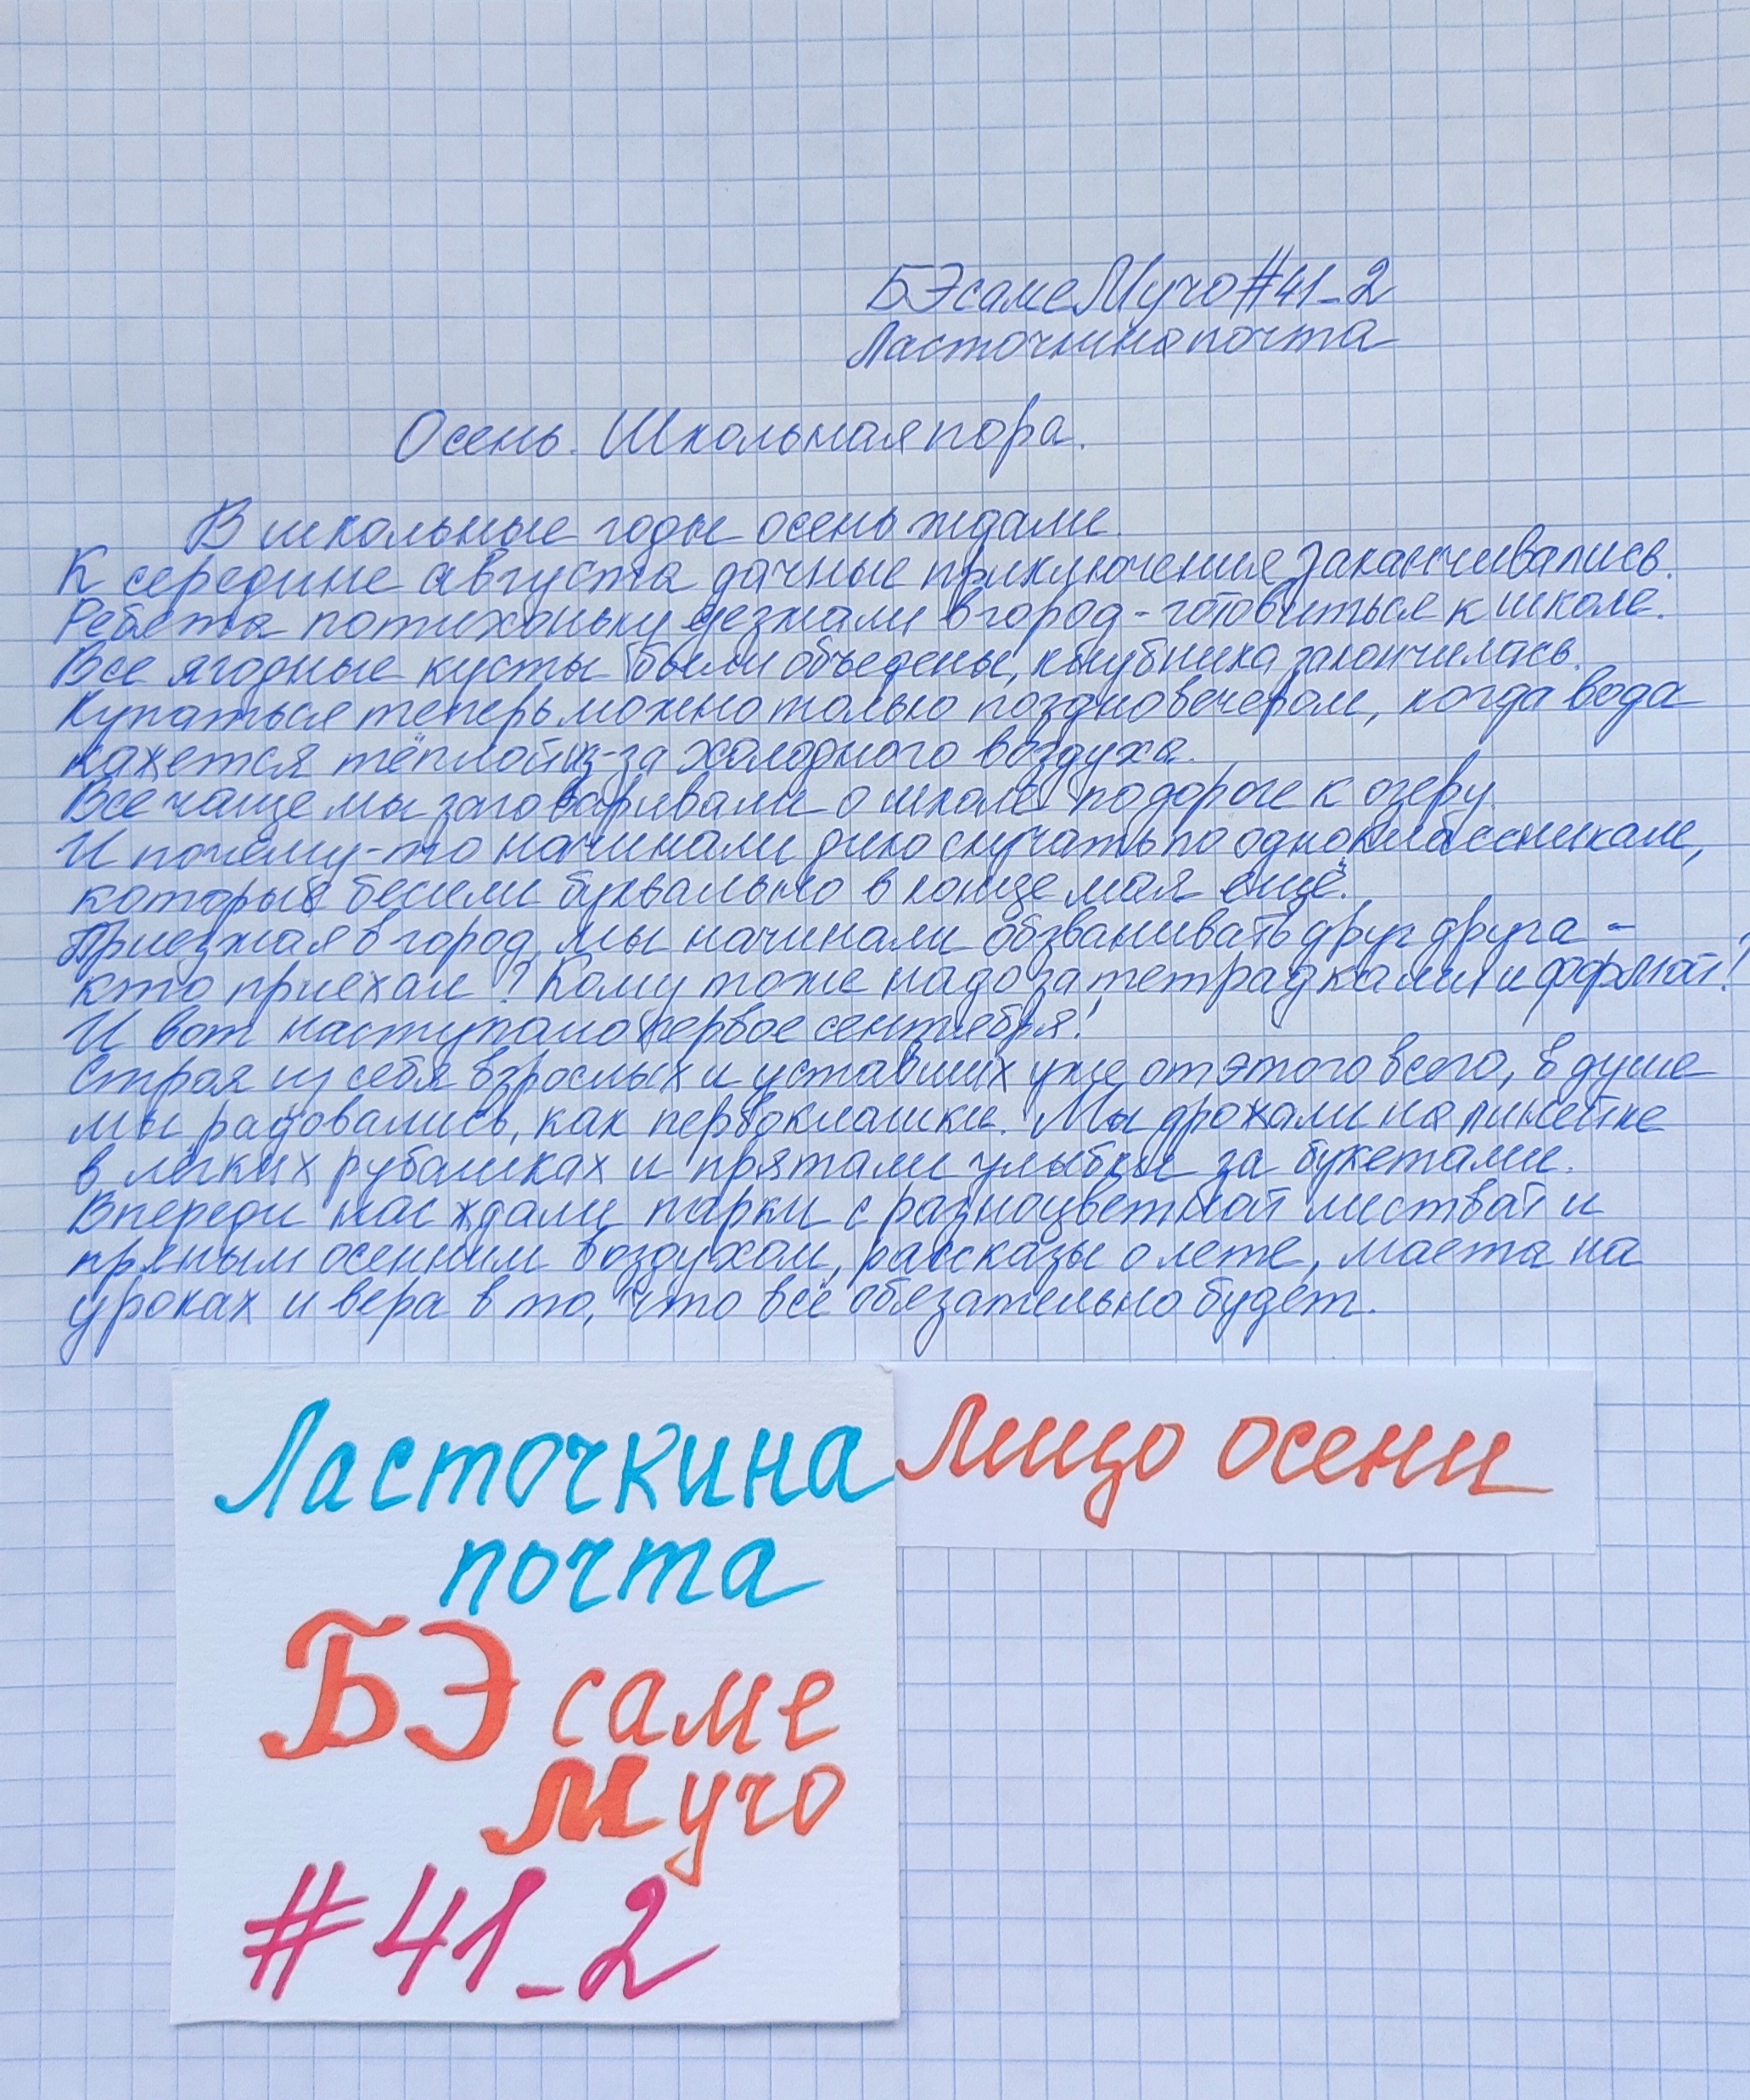 БЭсамеМучо#41_2
Ласточкина почта
Осень. Школьная пора.
В школьные годы осень ждали.
К середине августа дачные приключения заканчивались.
Ребята потихоньку уезжали в город - готовиться к школе.
Все ягодные кусты были объедены, клубника закончилась.
Купаться теперь можно только поздно вечером, когда вода
кажется тёплой из-за холодного воздуха.
Все чаще мы заговаривали о школе по дороге к озеру.
И почему-то начинали дико скучать по одноклассникам,
которые бесили буквально в конце мая ещё.
Приезжая в город, мы начинали обзванивать друг друга -
кто приехал? Кому тоже надо за тетрадками и формой?
И вот наступало первое сентября!
Строя из себя взрослых и уставших уже от этого всего, в душе
мы радовались, как первоклашки. Мы дрожали на линейке
в лёгких рубашках и прятали улыбки за букетами.
Впереди нас ждали парки с разноцветной листвой и
пряным осенним воздухом, рассказы о лете, маета на
уроках и вера в то, что всё обязательно будет.
Ласточкина
почта
Лицо осени
БЭсаме
Мучо
#41_2